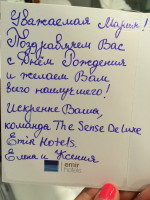 Уважаемая Мария!
Поздравляем Вас
с Днём Рождения
и желаем Вам
всего наилучшего!
Искренне Ваша,
команда The Sense De Luxe
Emir Hotels.
Елена и Ксения
emir
hotels